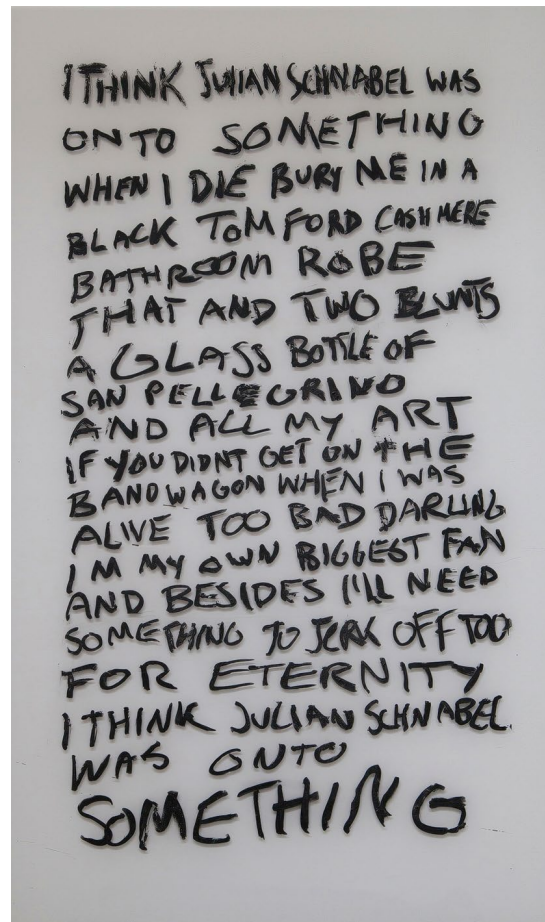 I THINK JULIAN SCHNABEL WAS
ONTO SOMETHING
WHEN I DIE BURY ME IN A
BLACK TOM FORD CASHMERE
BATHROOM ROBE
THAT AND TWO BLUNTS
A GLASS BOTTLE OF
SAN PELLEGRINO
AND ALL MY ART
IF YOU DIDNT GET ON THE
BANDWAGON WHEN I WAS
ALIVE TOO BAD DARLING
I M MY OWN BIGGEST FAN
AND BESIDES I'LL NEED
SOMETHING TO JERK OFF TOO
FOR ETERNITY
I THINK JULIAN SCHNABEL.
WAS ONTO
SOMETHING